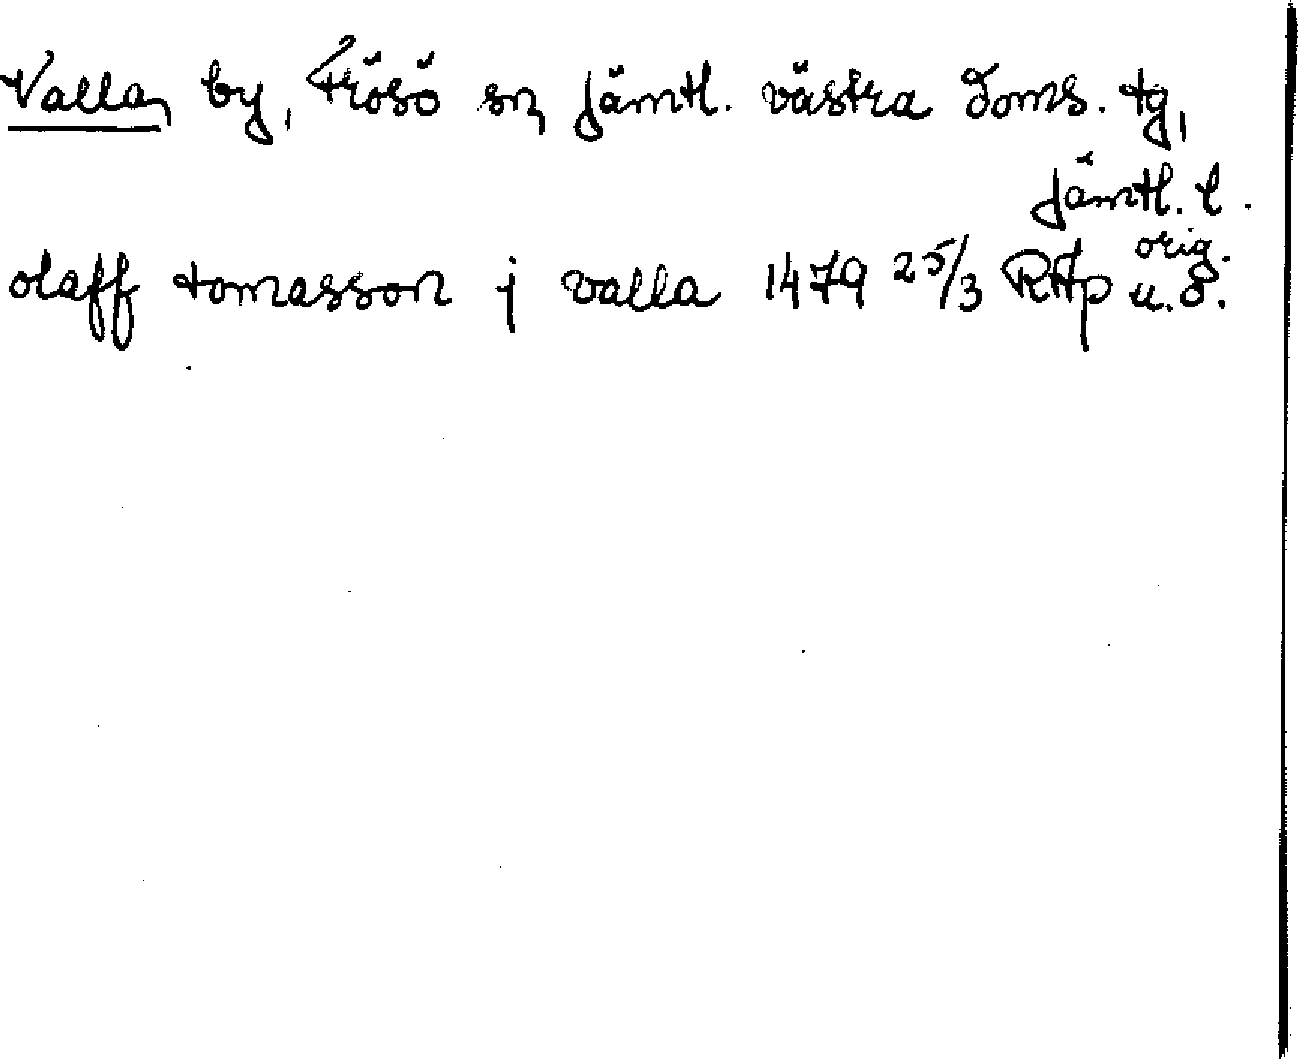 Valla, by, Frösö sn, Jämtl. västra doms. tg,
Jämtl. l.
olaff tomasson j valla 1479 25/3 RAp orig. u.ö.